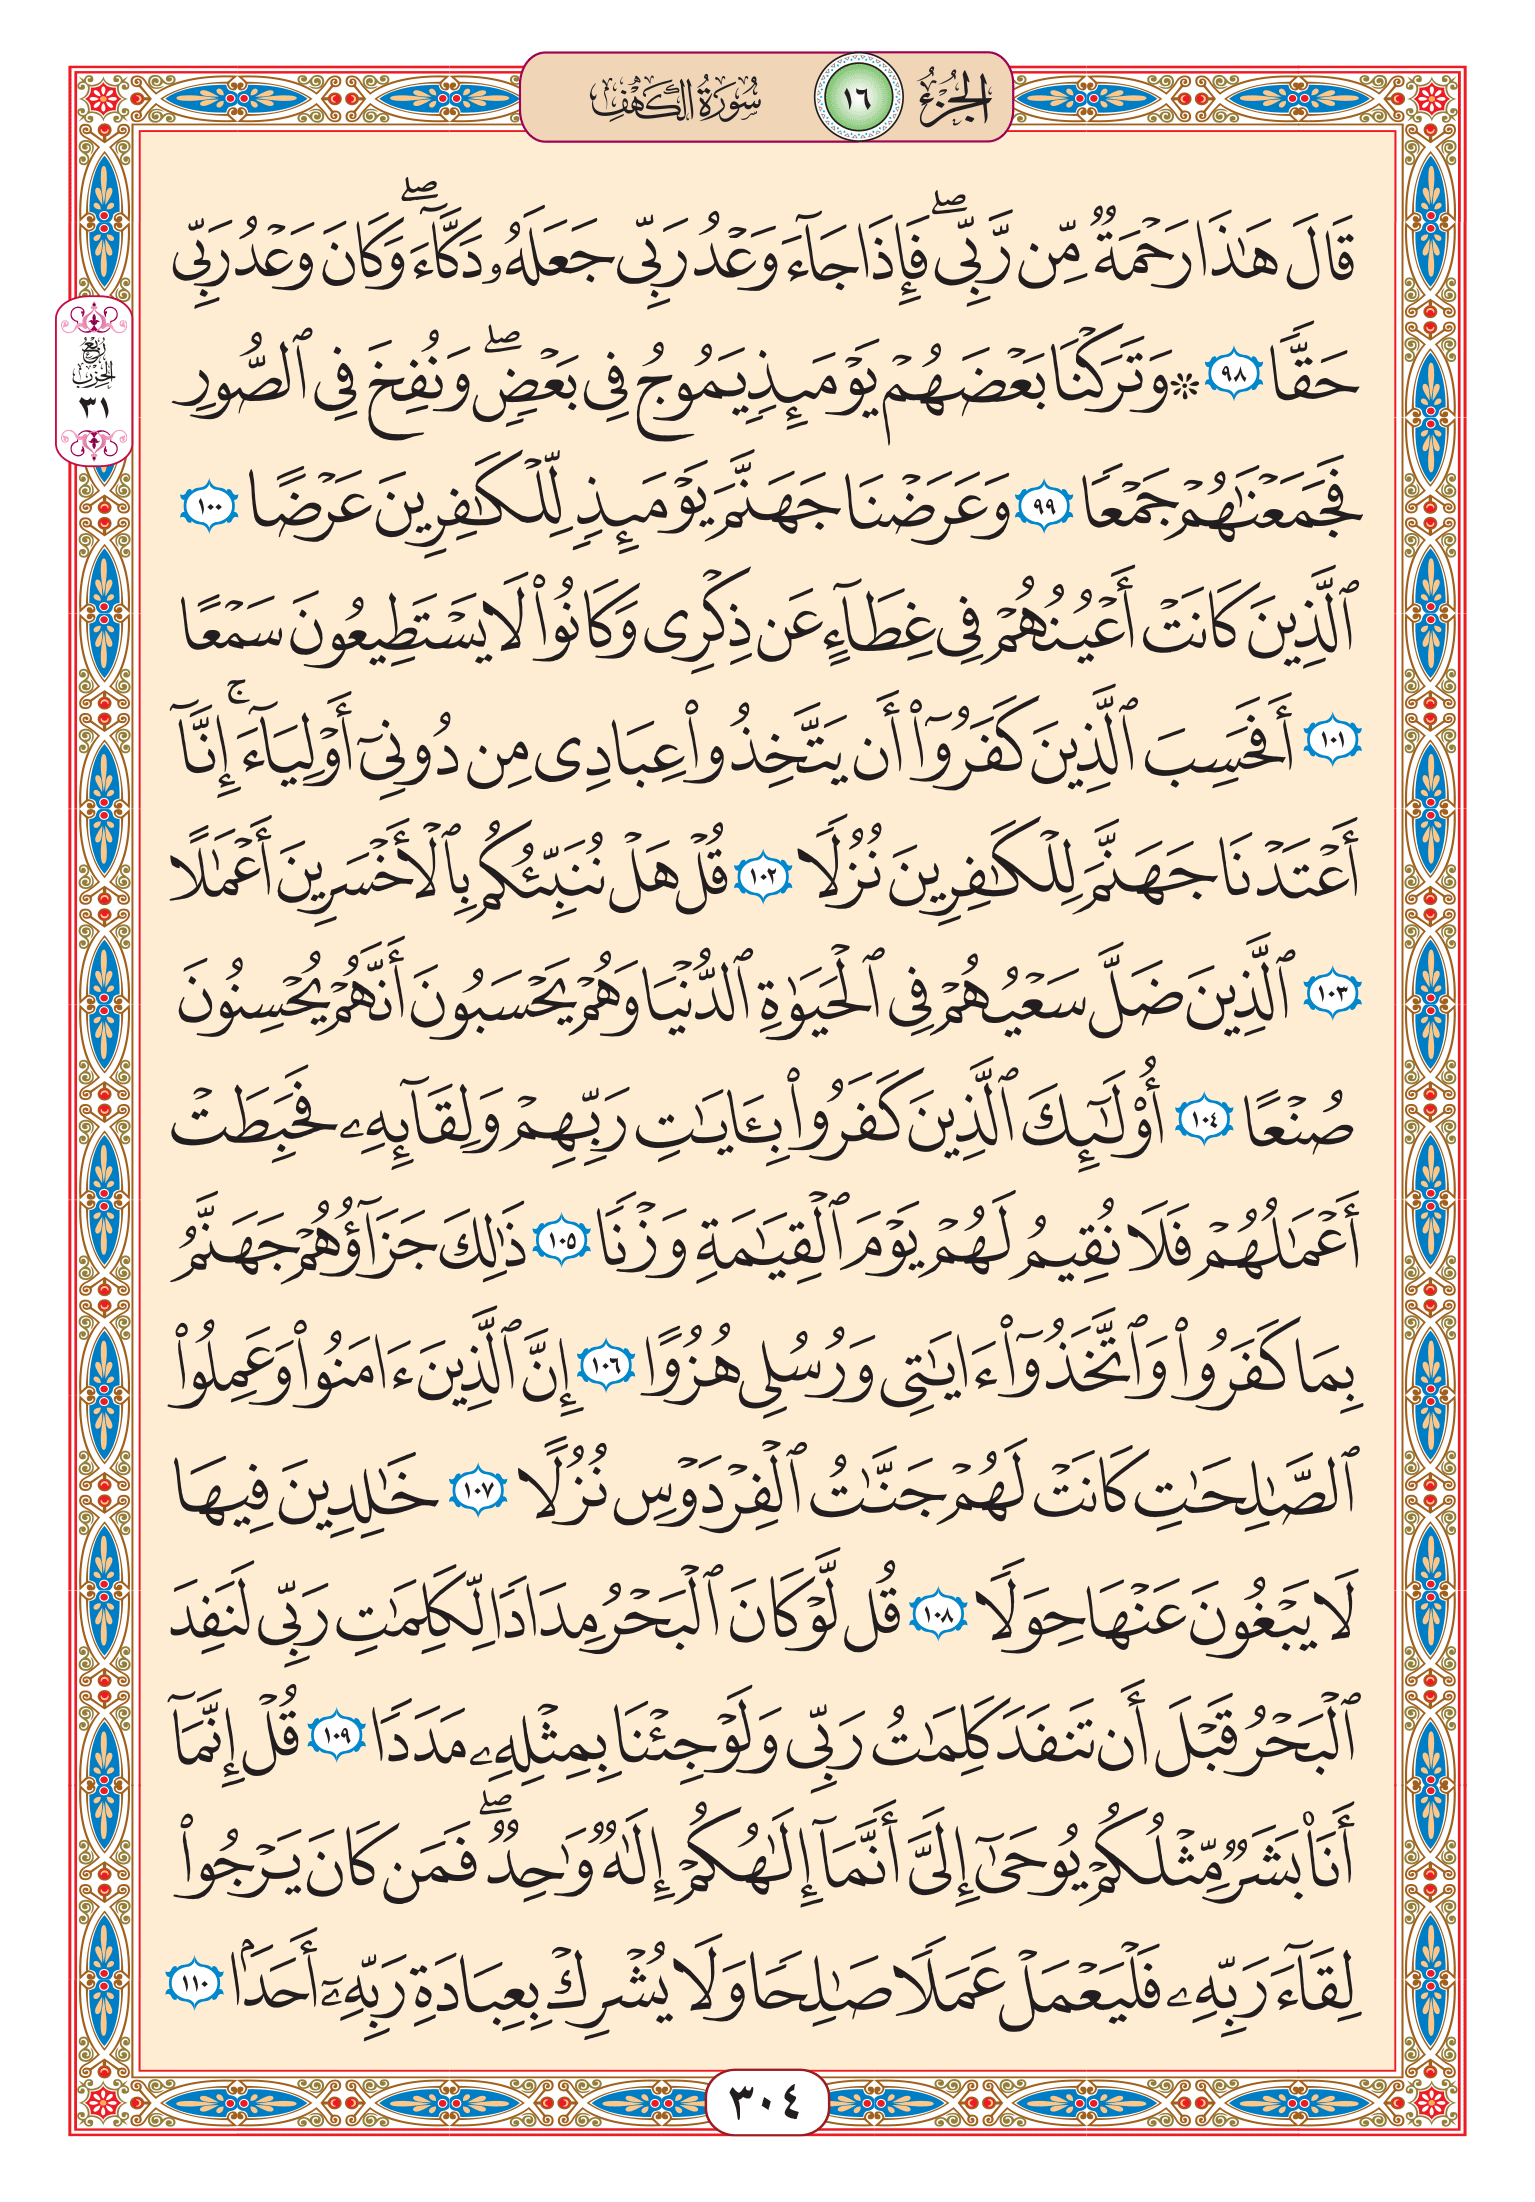 الجزء ١٦ سورة الكهف
قَالَ هَٰذَا رَحْمَةٌ مِّن رَّبِّي ۖ فَإِذَا جَآءَ وَعْدُ رَبِّي جَعَلَهُۥ دَكَّآءَ ۖ وَكَانَ وَعْدُ رَبِّي
ربع الحزب ٣١
حَقًّا ٩٨ ۞ وَتَرَكْنَا بَعْضَهُمْ يَوْمَئِذٍ يَمُوجُ فِي بَعْضٍ ۖ وَنُفِخَ فِي ٱلصُّورِ
فَجَمَعْنَٰهُمْ جَمْعًا ٩٩ وَعَرَضْنَا جَهَنَّمَ يَوْمَئِذٍ لِّلْكَٰفِرِينَ عَرْضًا ١٠٠
ٱلَّذِينَ كَانَتْ أَعْيُنُهُمْ فِي غِطَآءٍ عَن ذِكْرِي وَكَانُوا۟ لَا يَسْتَطِيعُونَ سَمْعًا
١٠١ أَفَحَسِبَ ٱلَّذِينَ كَفَرُوٓا۟ أَن يَتَّخِذُوا۟ عِبَادِي مِن دُونِيٓ أَوْلِيَآءَ ۚ إِنَّآ
أَعْتَدْنَا جَهَنَّمَ لِلْكَٰفِرِينَ نُزُلًا ١٠٢ قُلْ هَلْ نُنَبِّئُكُم بِٱلْأَخْسَرِينَ أَعْمَٰلًا
١٠٣ ٱلَّذِينَ ضَلَّ سَعْيُهُمْ فِي ٱلْحَيَوٰةِ ٱلدُّنْيَا وَهُمْ يَحْسَبُونَ أَنَّهُمْ يُحْسِنُونَ
صُنْعًا ١٠٤ أُو۟لَٰٓئِكَ ٱلَّذِينَ كَفَرُوا۟ بِـَٔايَٰتِ رَبِّهِمْ وَلِقَآئِهِۦ فَحَبِطَتْ
أَعْمَٰلُهُمْ فَلَا نُقِيمُ لَهُمْ يَوْمَ ٱلْقِيَٰمَةِ وَزْنًا ١٠٥ ذَٰلِكَ جَزَآؤُهُمْ جَهَنَّمُ
بِمَا كَفَرُوا۟ وَٱتَّخَذُوٓا۟ ءَايَٰتِي وَرُسُلِي هُزُوًا ١٠٦ إِنَّ ٱلَّذِينَ ءَامَنُوا۟ وَعَمِلُوا۟
ٱلصَّٰلِحَٰتِ كَانَتْ لَهُمْ جَنَّٰتُ ٱلْفِرْدَوْسِ نُزُلًا ١٠٧ خَٰلِدِينَ فِيهَا
لَا يَبْغُونَ عَنْهَا حِوَلًا ١٠٨ قُل لَّوْ كَانَ ٱلْبَحْرُ مِدَادًا لِّكَلِمَٰتِ رَبِّي لَنَفِدَ
ٱلْبَحْرُ قَبْلَ أَن تَنفَدَ كَلِمَٰتُ رَبِّي وَلَوْ جِئْنَا بِمِثْلِهِۦ مَدَدًا ١٠٩ قُلْ إِنَّمَآ
أَنَا۠ بَشَرٌ مِّثْلُكُمْ يُوحَىٰٓ إِلَيَّ أَنَّمَآ إِلَٰهُكُمْ إِلَٰهٌ وَٰحِدٌ ۖ فَمَن كَانَ يَرْجُوا۟
لِقَآءَ رَبِّهِۦ فَلْيَعْمَلْ عَمَلًا صَٰلِحًا وَلَا يُشْرِكْ بِعِبَادَةِ رَبِّهِۦٓ أَحَدًۢا ١١٠
٣٠٤